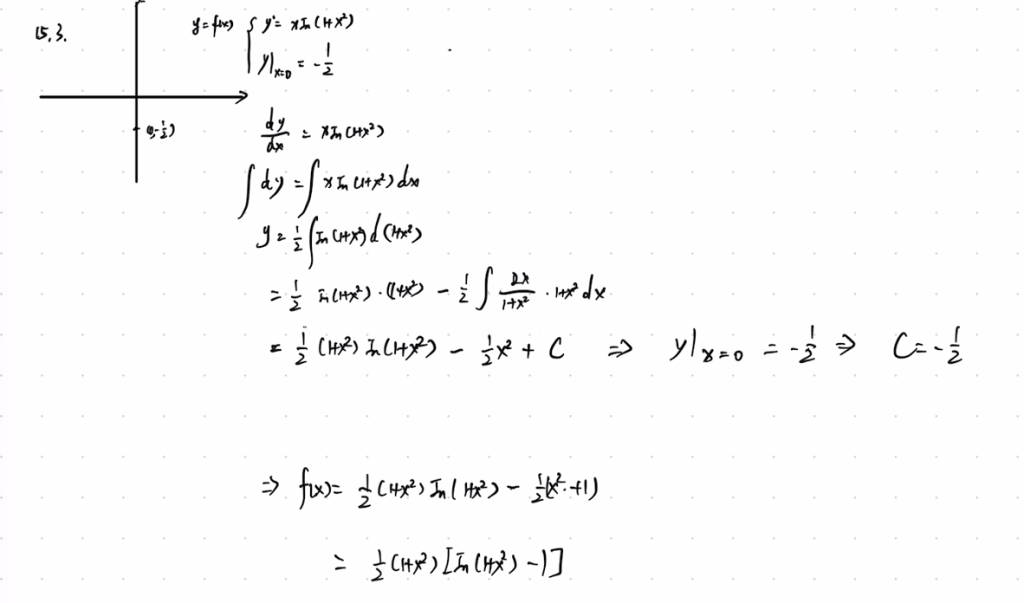 15.3.
y=f(x) { y'= x ln(1+x²)
y|x=0 = -1/2
(0,-1/2)
dy/dx = x ln(1+x²)
∫dy = ∫x ln(1+x²)dx
y = 1/2 ∫ln(1+x²)d(1+x²)
= 1/2 ln(1+x²)·(1+x²) - 1/2 ∫ 2x/1+x² · 1+x² dx
= 1/2 (1+x²) ln(1+x²) - 1/2 x² + C ⇒ y|x=0 = -1/2 ⇒ C=-1/2
⇒ f(x)= 1/2 (1+x²) ln(1+x²) - 1/2(x²+1)
= 1/2 (1+x²)[ln(1+x²)-1]